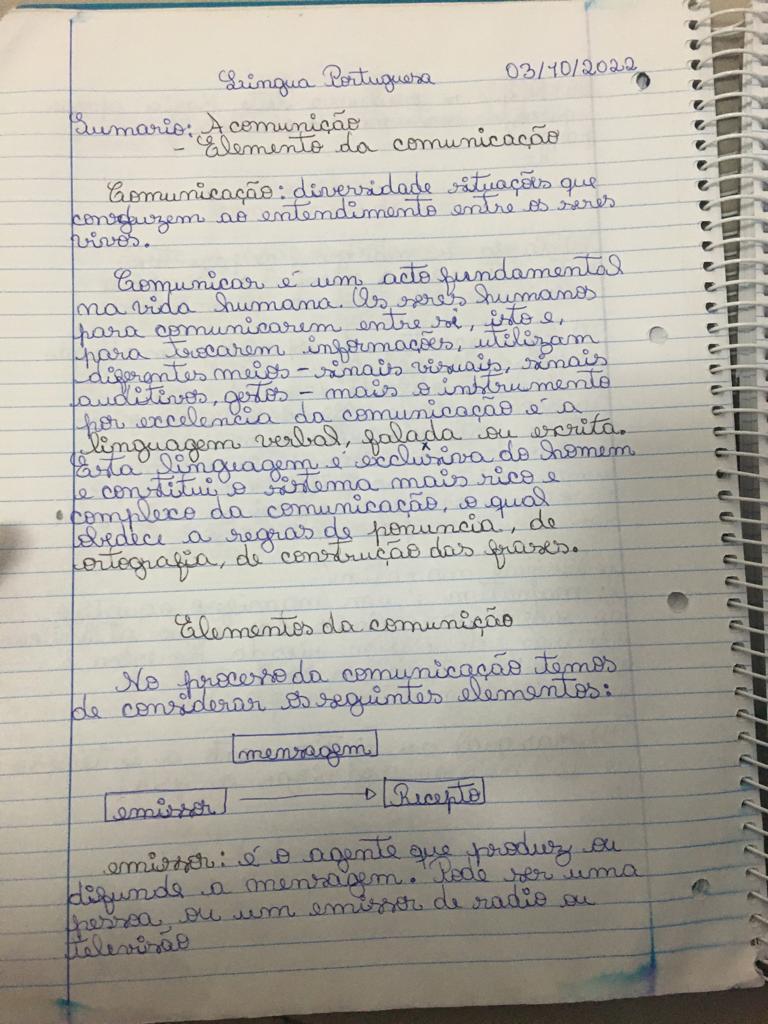 Lingua Portuguesa 03/10/2022
Sumario: A comunição
- Elemento da comunicação
Comunicação: diversidade situações que
conduzem ao entendimento entre os seres
vivos.
Comunicar é um acto fundamental
na vida humana. Os seres humanos
para comunicarem entre si, isto e,
para trocarem informações, utilizam
diferentes meios - sinais visuais, sinais
auditivos, gestos - mais o instrumento
por excelencia da comunicação é a
linguagem verbal, falada ou escrita.
Esta linguagem é exclusiva do homem
e constitui o sistema mais rico e
complexo da comunicação, o qual
obedece a regras de ponuncia, de
ortografia, de construção das frases.
Elementos da comunição
No processo da comunicação temos
de considerar os seguintes elementos:
mensagem
emissor Recepto
emissor: é o agente que produz ou
difunde a mensagem. Pode ser uma
pessoa ou um emissor de radio ou
televisão